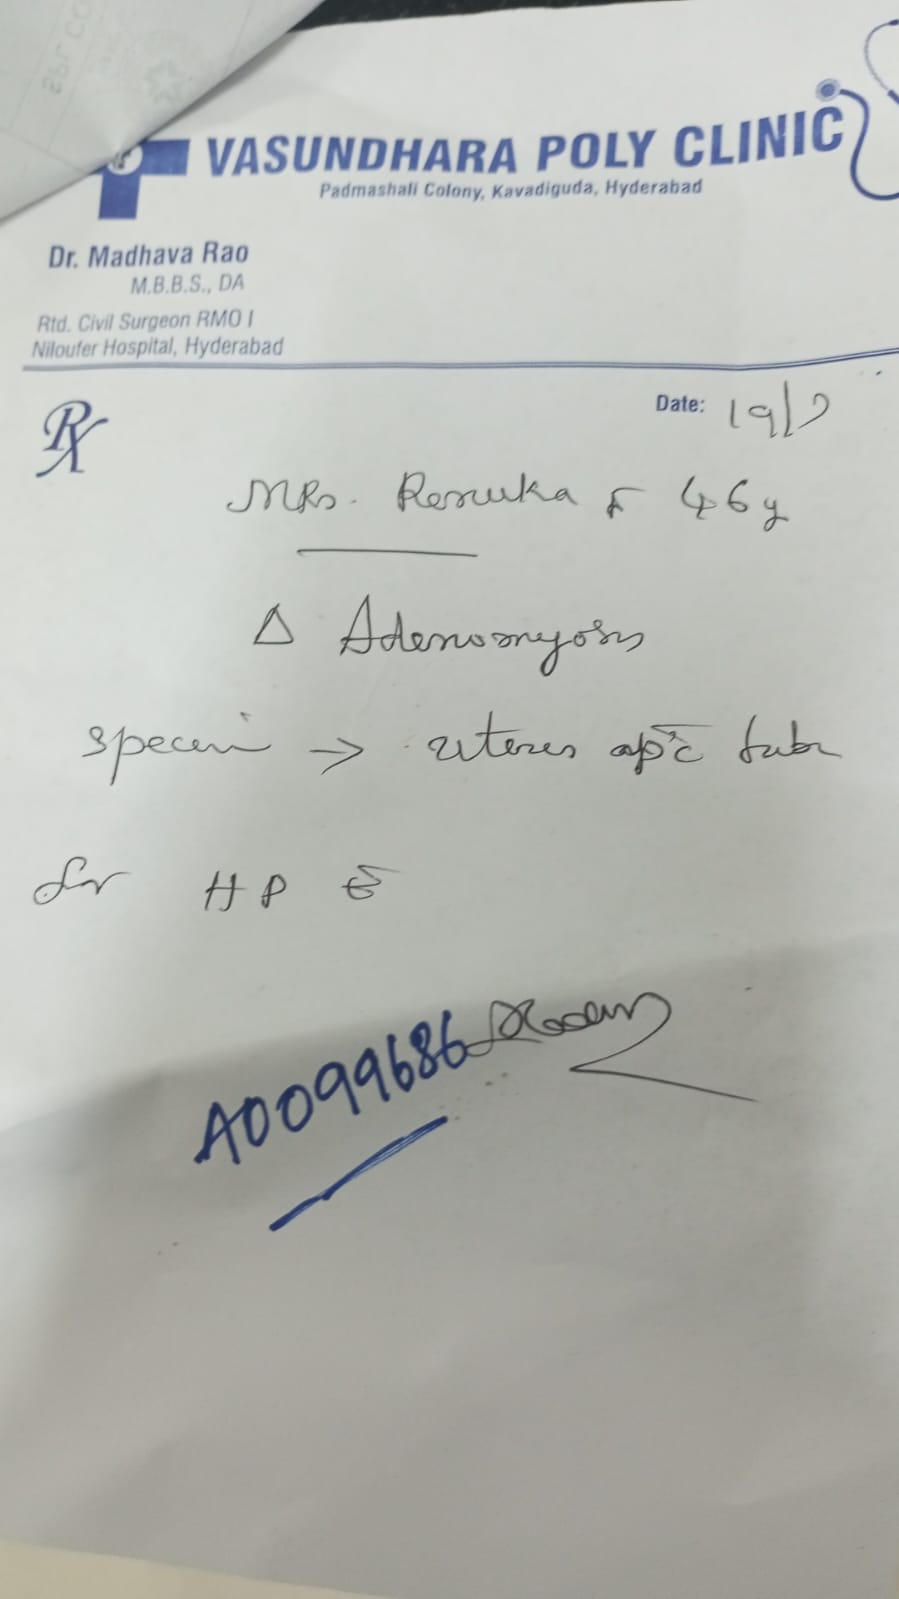 VASUNDHARA POLY CLINIC
Padmashali Colony, Kavadiguda, Hyderabad
Dr. Madhava Rao
M.B.B.S., DA
Rtd. Civil Surgeon RMO I
Niloufer Hospital, Hyderabad
Rx
Date: 19/
MRs. Renuka F 46y
Δ Adenomyosis
→ uterus
for HPE
A0099686